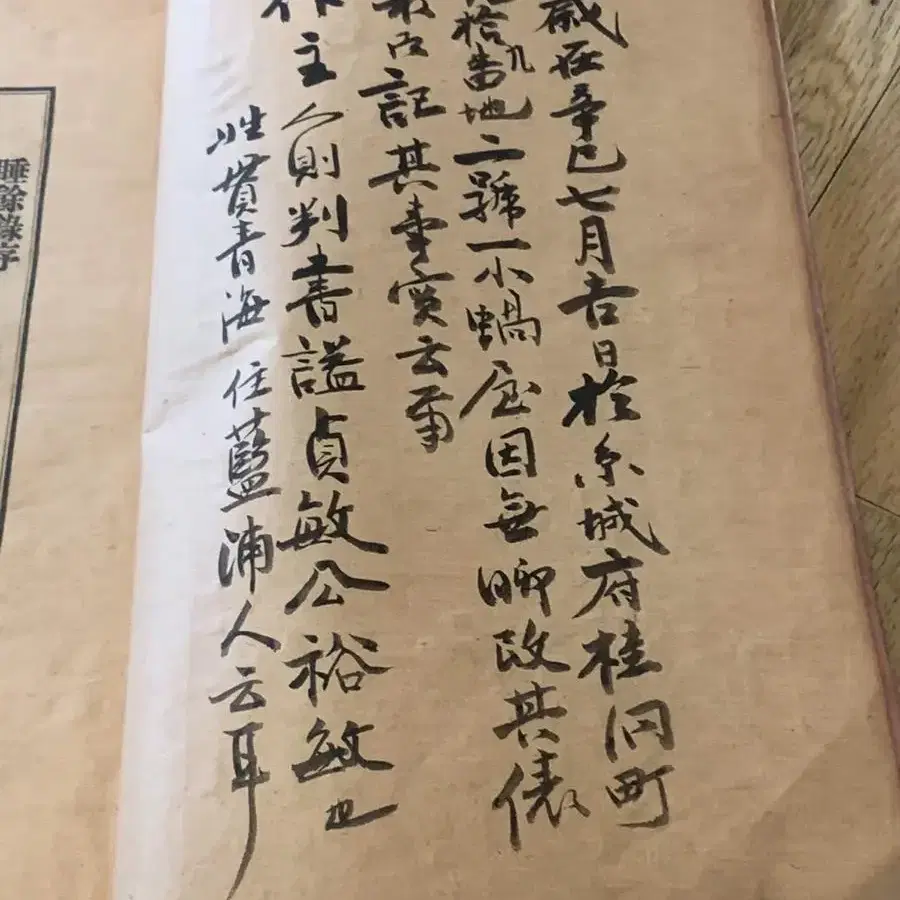 歲在辛巳七月吉日於京城府桂洞町
拾九番地二號一小蝸屋因無聊改其俵
記其事實云爾
主人則判書諡貞敏公裕敏也
姓貫青海住藍浦人云耳
睡餘錄序